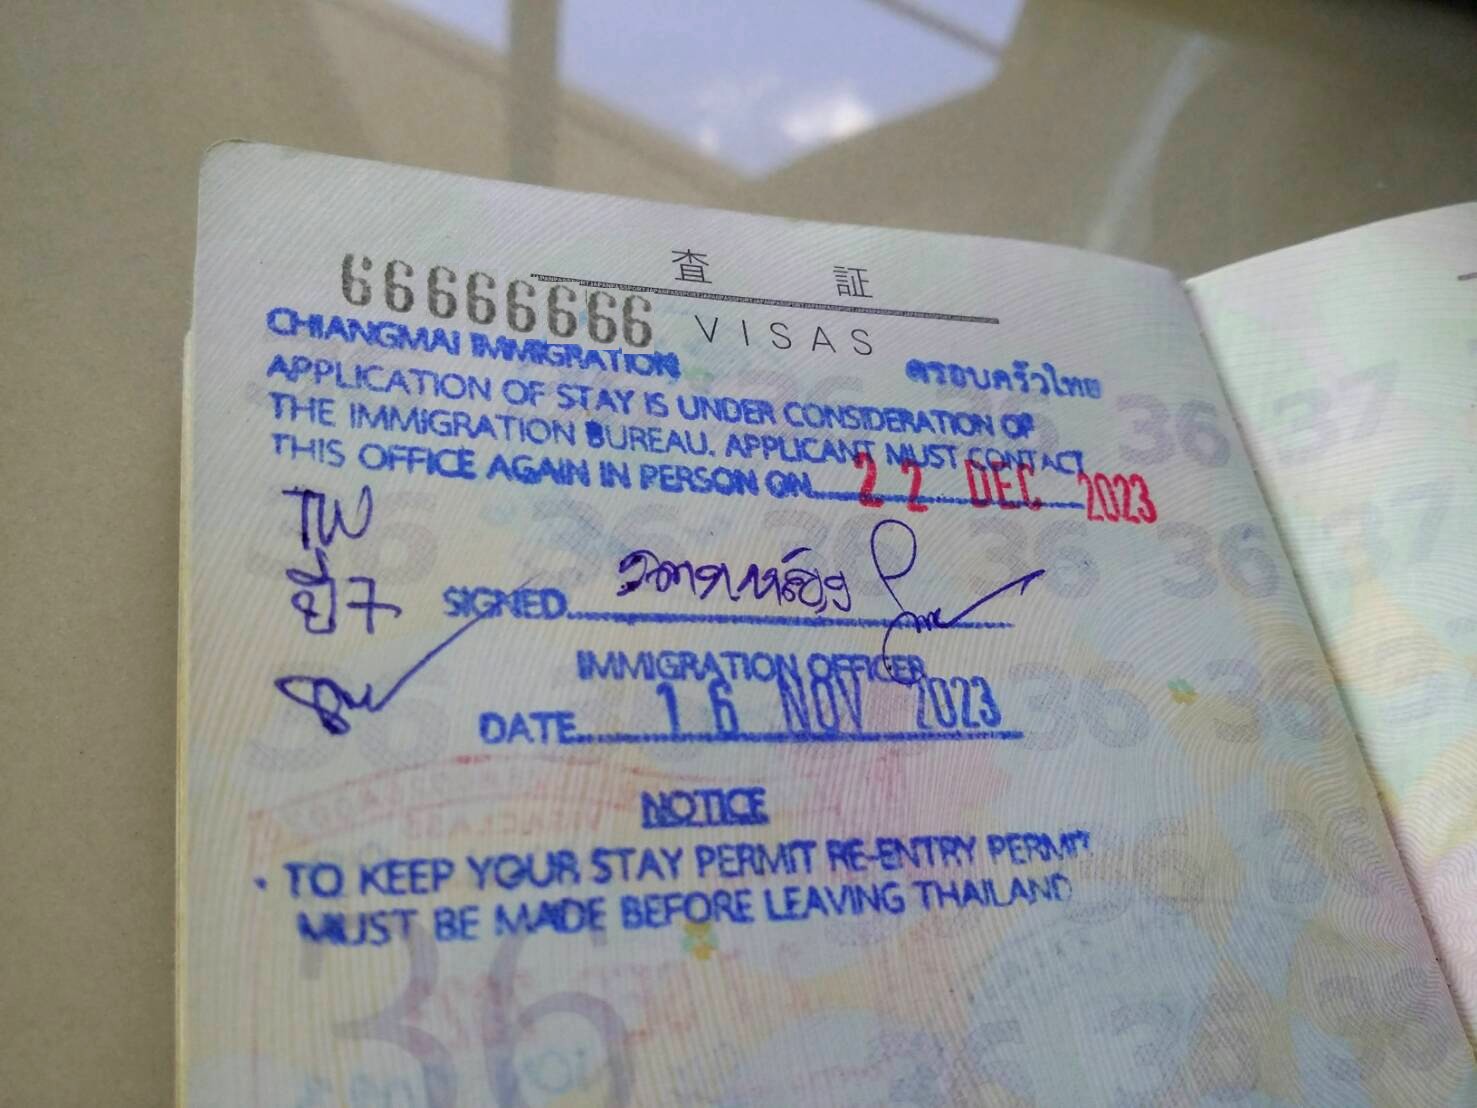 査 証
66666666
VISAS
CHIANGMAI IMMIGRATION
ครอบครัวไทย
APPLICATION OF STAY IS UNDER CONSIDERATION OF
THE IMMIGRATION BUREAU. APPLICANT MUST CONTACT
THIS OFFICE AGAIN IN PERSON ON 22 DEC 2023
TW
ปี 7
SIGNED
IMMIGRATION OFFICER
DATE 16 NOV 2023
NOTICE
• TO KEEP YOUR STAY PERMIT RE-ENTRY PERMIT
MUST BE MADE BEFORE LEAVING THAILAND
36